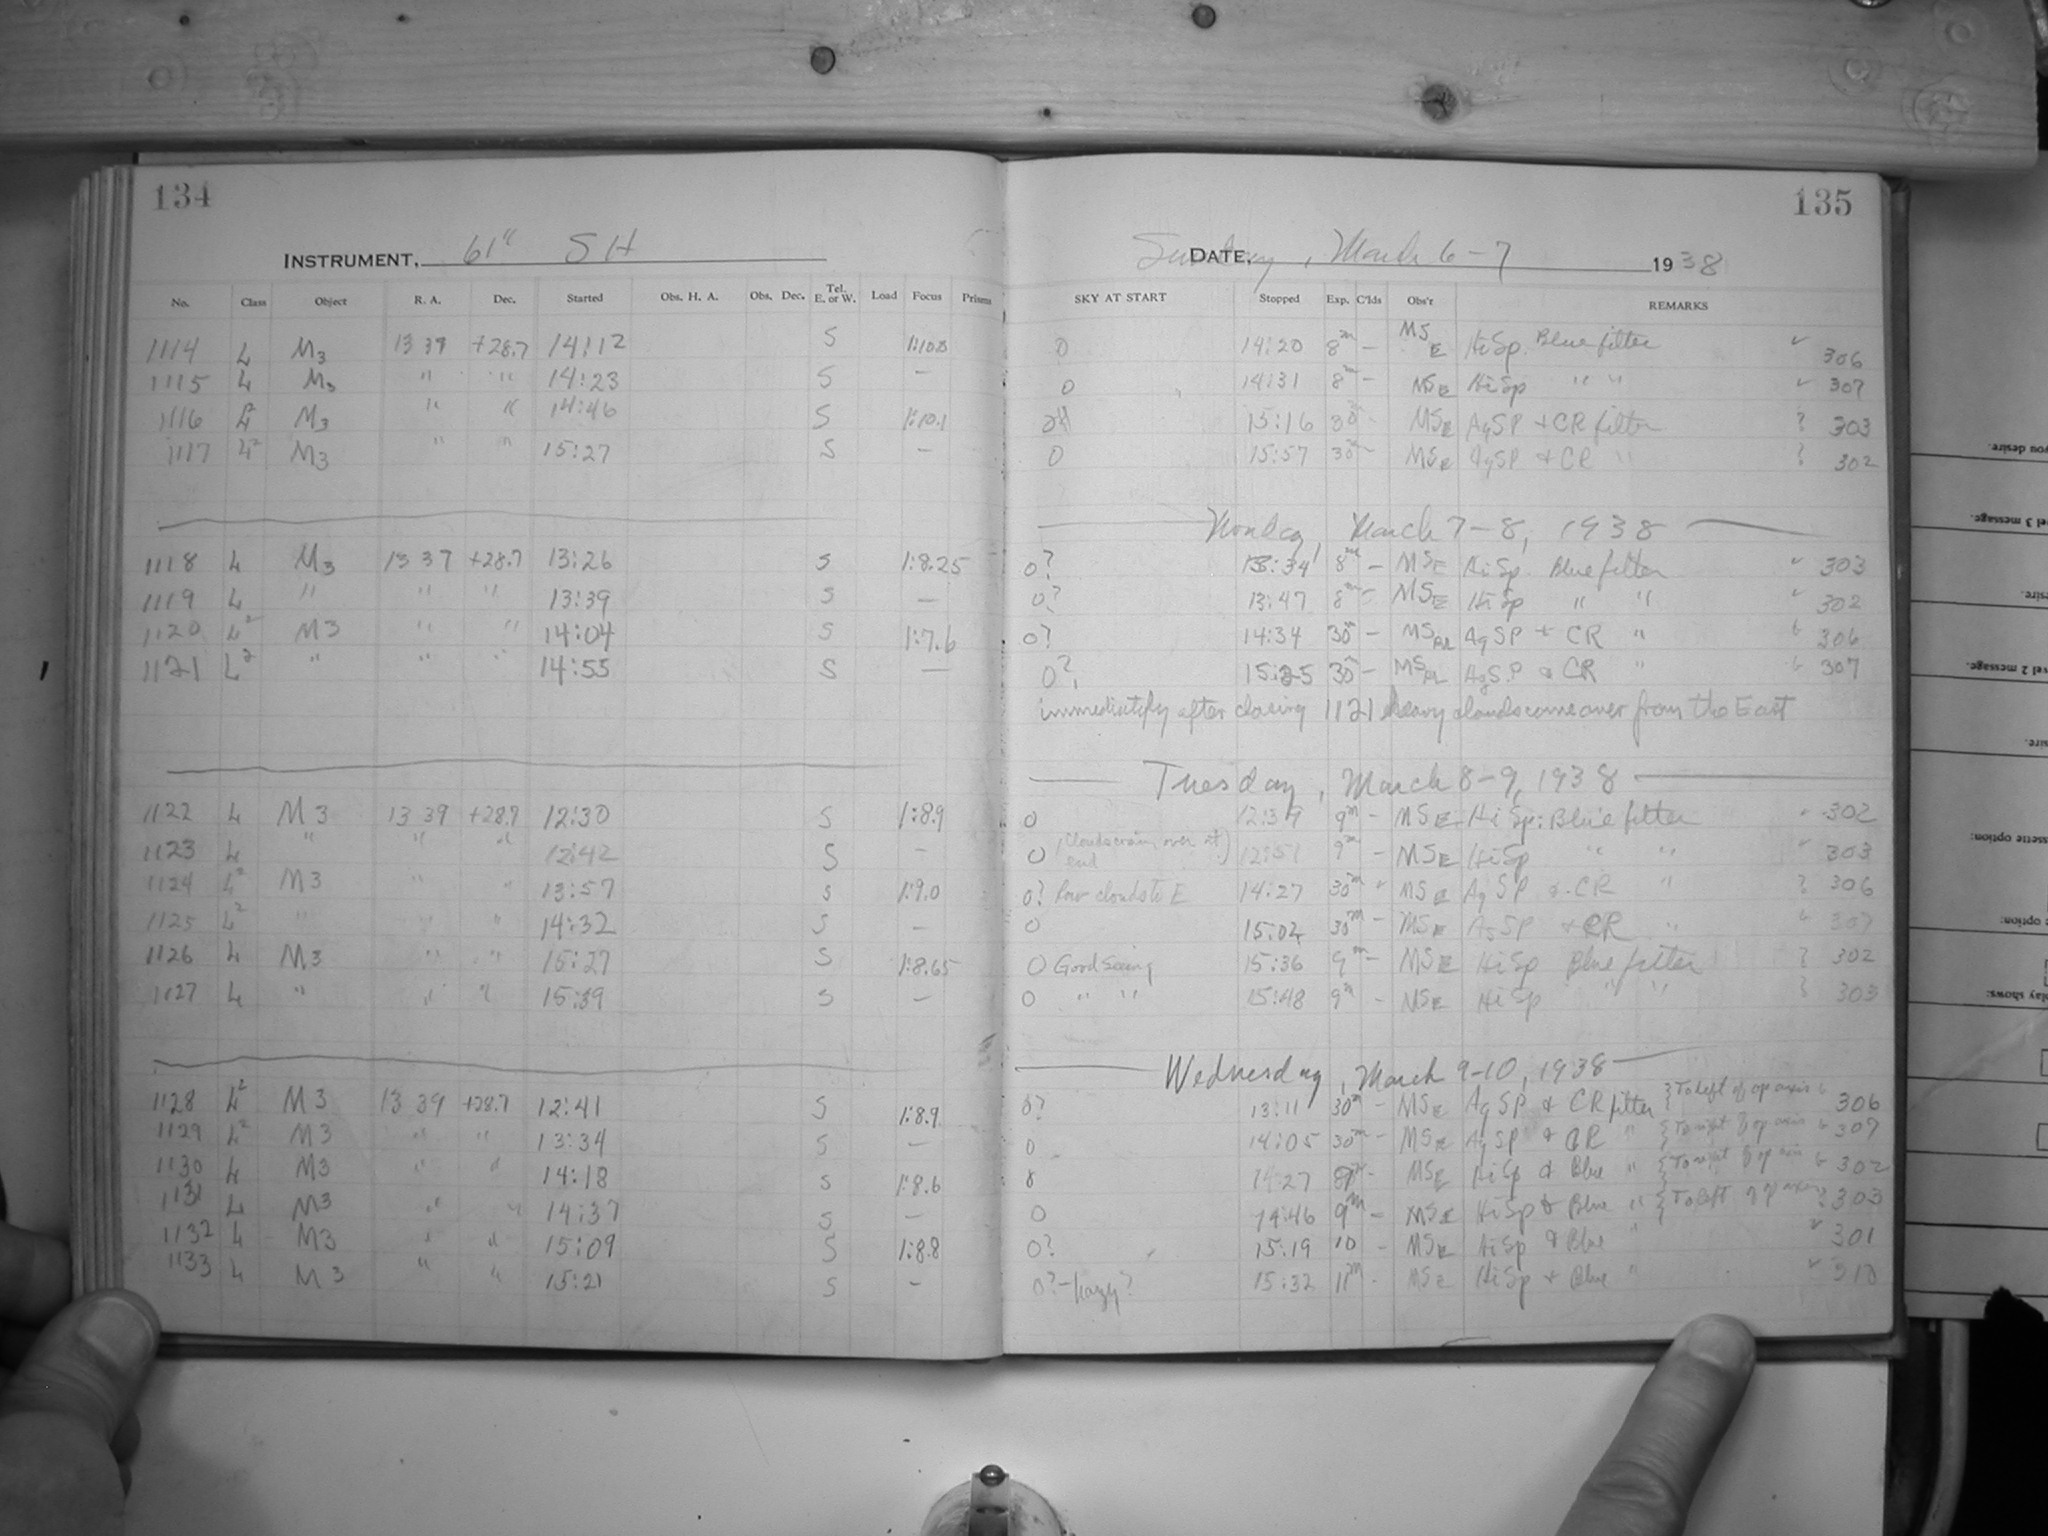 134
INSTRUMENT, 61" SH
No. Class Object R. A. Dec. Started Obs. H. A. Obs. Dec. Tel. E. or W. Load Focus Prisms
1114 L M3 13 39 +28.7 14:12 S 1:10.8
1115 L M3 " " 14:23 S —
1116 L² M3 " " 14:46 S 1:10.1
1117 L² M3 " " 15:27 S —
1118 L M3 13 37 +28.7 13:26 S 1:8.25
1119 L " " " 13:39 S —
1120 L² M3 " " 14:04 S 1:7.6
1121 L² " " " 14:55 S —
1122 L M3 13 39 +28.7 12:30 S 1:8.9
1123 L " " " 12:42 S —
1124 L² M3 " " 13:57 S 1:9.0
1125 L² " " " 14:32 S —
1126 L M3 " " 15:27 S 1:8.65
1127 L " " " 15:39 S —
1128 L² M3 13 39 +28.7 12:41 S 1:8.9
1129 L² M3 " " 13:34 S —
1130 L M3 " " 14:18 S 1:8.6
1131 L M3 " " 14:37 S —
1132 L M3 " " 15:09 S 1:8.8
1133 L M3 " " 15:21 S —
135
DATE, Sunday, March 6-7 1938
SKY AT START Stopped Exp. C'lds Obs'r REMARKS
0 14:20 8m — MSE HiSp. Blue filter 306
0 14:31 8m — MSE HiSp " " 307
15:16 30 MSE AgSP + CR filter ? 303
0 15:57 30 — MSE AgSP & CR " ? 302
Monday, March 7-8, 1938
0? 13:34 8m — MSE HiSp. Blue filter 303
0? 13:47 8m MSE HiSp " " 302
0? 14:34 30m — AgSP + CR " 306
0? 15:25 30m — AgSP & CR " 307
immediately after closing 1121 heavy clouds come over from the East
Tuesday, March 8-9, 1938
0 12:39 9m — MSE HiSp: Blue filter 302
0 (Clouds over at end) 12:51 9m — MSE HiSp " " 303
0? low clouds to E 14:27 30m MSE AgSP & CR " ? 306
0 15:02 30m — MSE AgSP & CR " 307
0 Good Seeing 15:36 9m — MSE HiSp Blue filter ? 302
0 " " 15:48 9m — MSE HiSp " " ? 303
Wednesday, March 9-10, 1938
0? 13:11 30m — MSE AgSP & CR filter } To left of op axis 306
0 14:05 30m — MSE AgSP & CR " { To right of op axis 307
14:27 — MSE HiSp & Blue " { To right of op axis 302
0 14:46 9m — MSE HiSp & Blue " { To left of op axis 303
0? 15:19 10 — MSE HiSp & Blue " 301
0? — hazy? 15:32 11m — MSE HiSp + Blue " 310
you desire.
el 3 message.
vel 2 message.
ssette option:
option:
play shows: